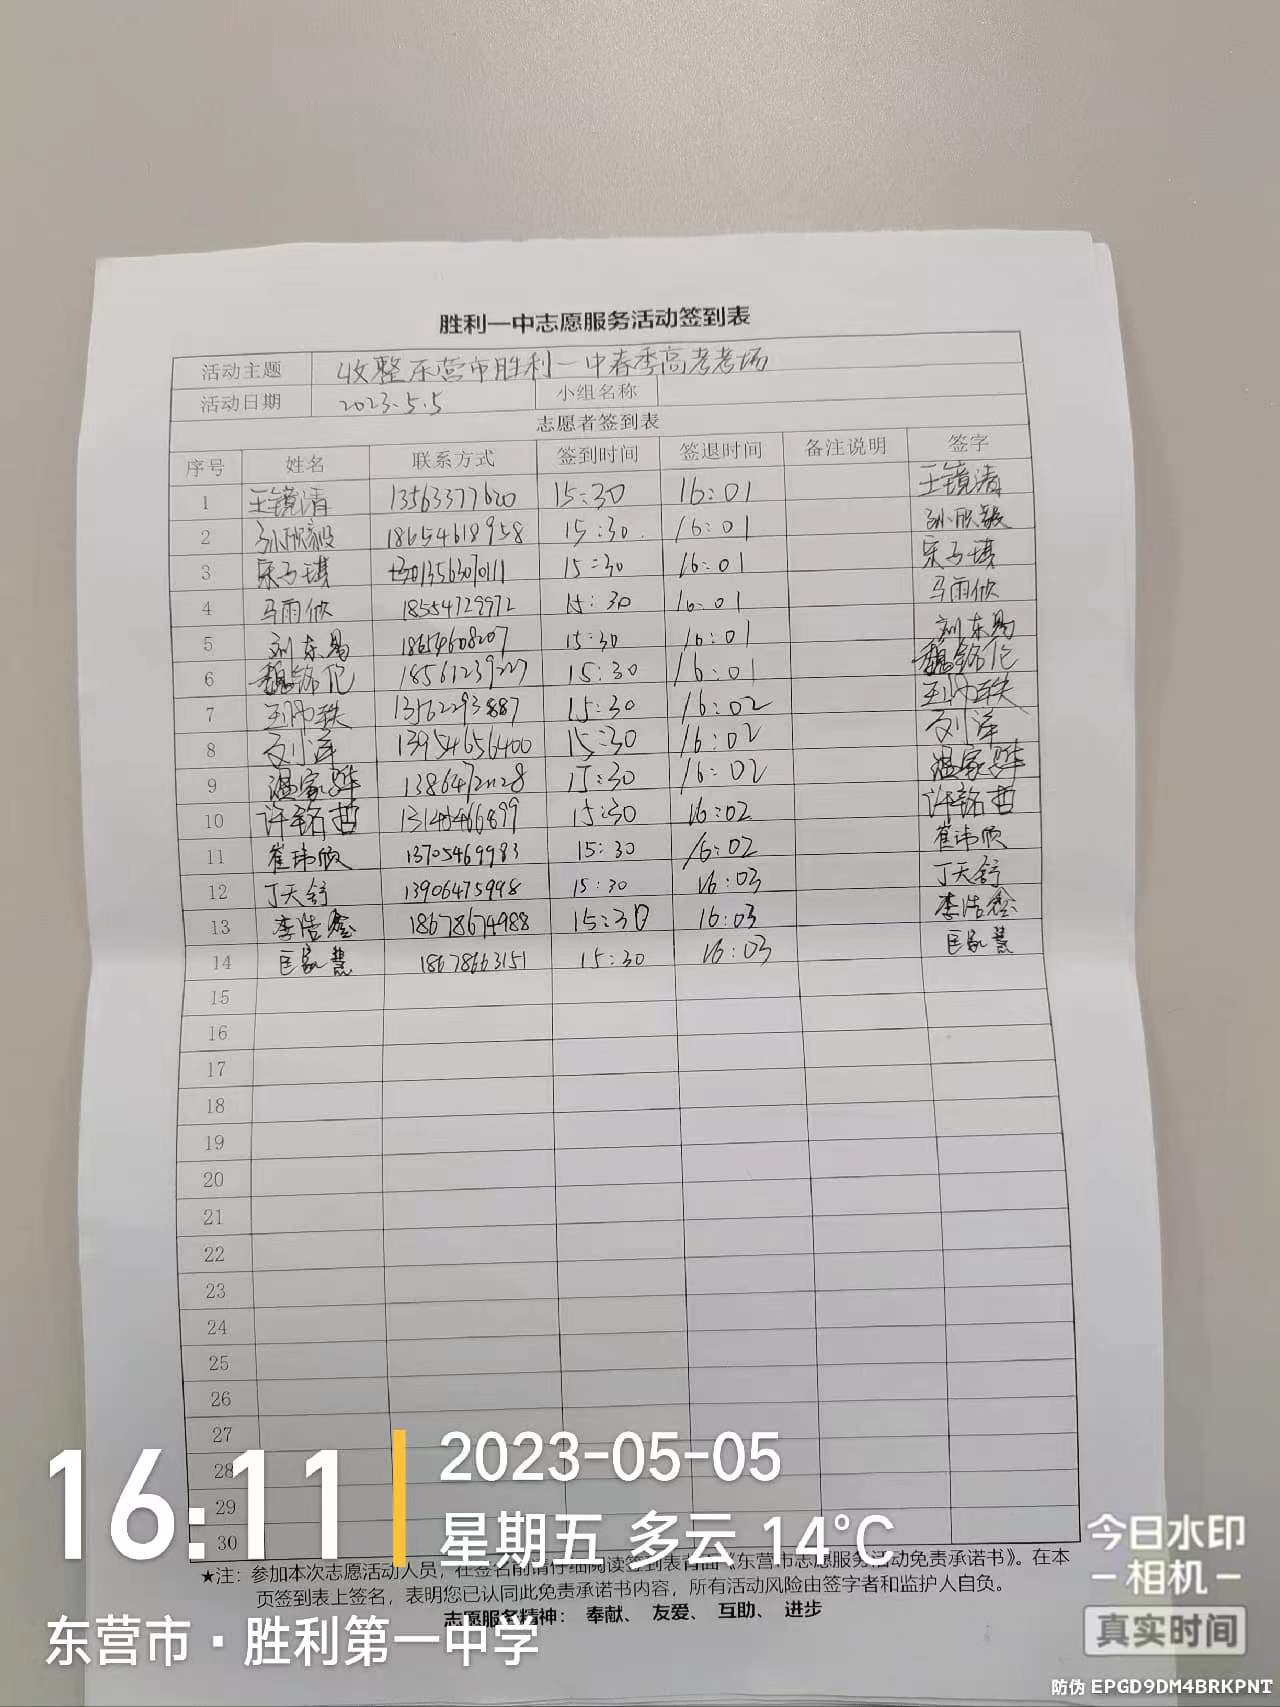 胜利一中志愿服务活动签到表
活动主题 收整东营市胜利一中春季高考考场
活动日期 2023.5.5 小组名称
志愿者签到表
序号 姓名 联系方式 签到时间 签退时间 备注说明 签字
1 王镜清 13563377620 15:30 16:01 王镜清
2 孙欣毅 18654618958 15:30 16:01 孙欣毅
3 宋子琪 13563070111 15:30 16:01 宋子琪
4 马雨欣 18554729972 15:30 16:01 马雨欣
5 刘东易 18654608207 15:30 16:01 刘东易
6 魏铭伦 18561239227 15:30 16:01 魏铭伦
7 13562293887 15:30 16:02
8 13954656400 15:30 16:02
9 温家骅 15:30 16:02 温家骅
10 许铭哲 15:30 16:02 许铭哲
11 崔玮欣 13705469983 15:30 16:02 崔玮欣
12 丁天舒 13906475998 15:30 16:03 丁天舒
13 李浩鑫 18678674988 15:30 16:03 李浩鑫
14 匡家慧 18678663151 15:30 16:03 匡家慧
15
16
17
18
19
20
21
22
23
24
25
26
27
28
29
30
★注：参加本次志愿活动人员，在签名前请仔细阅读签到表背面《东营市志愿服务活动免责承诺书》。在本
页签到表上签名，表明您已认同此免责承诺书内容，所有活动风险由签字者和监护人自负。
志愿服务精神： 奉献、 友爱、 互助、 进步
16:11
2023-05-05
星期五 多云 14°C
东营市·胜利第一中学
今日水印
相机
真实时间
防伪 EPGD9DM4BRKPNT